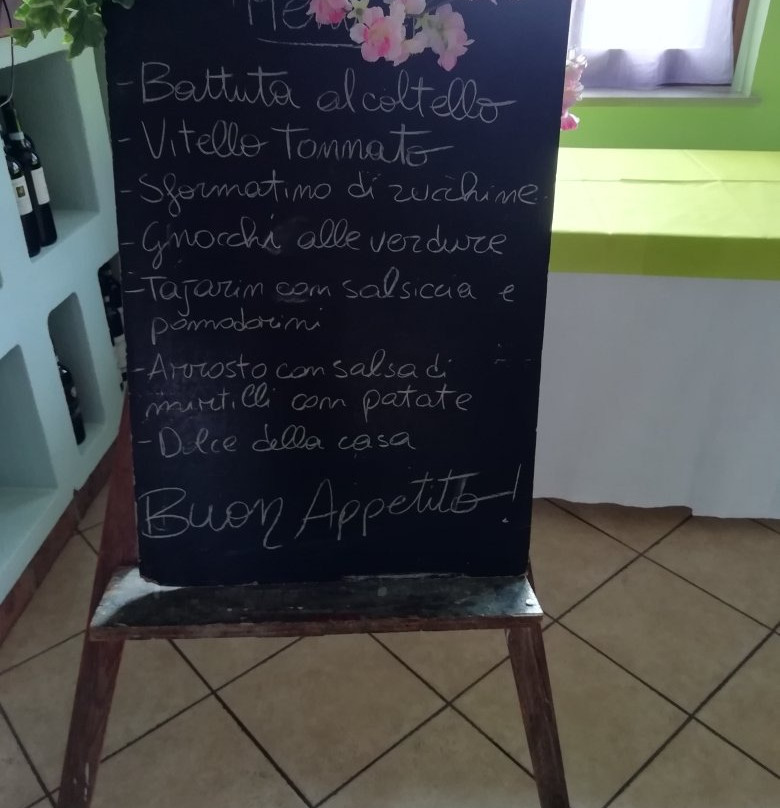 Menù
- Battuta al coltello
- Vitello Tonnato
- Sformatino di zucchine
- Gnocchi alle verdure
- Tajarin con salsiccia e
pomodorini
- Arrosto con salsa di
mirtilli con patate
- Dolce della casa
Buon Appetito!